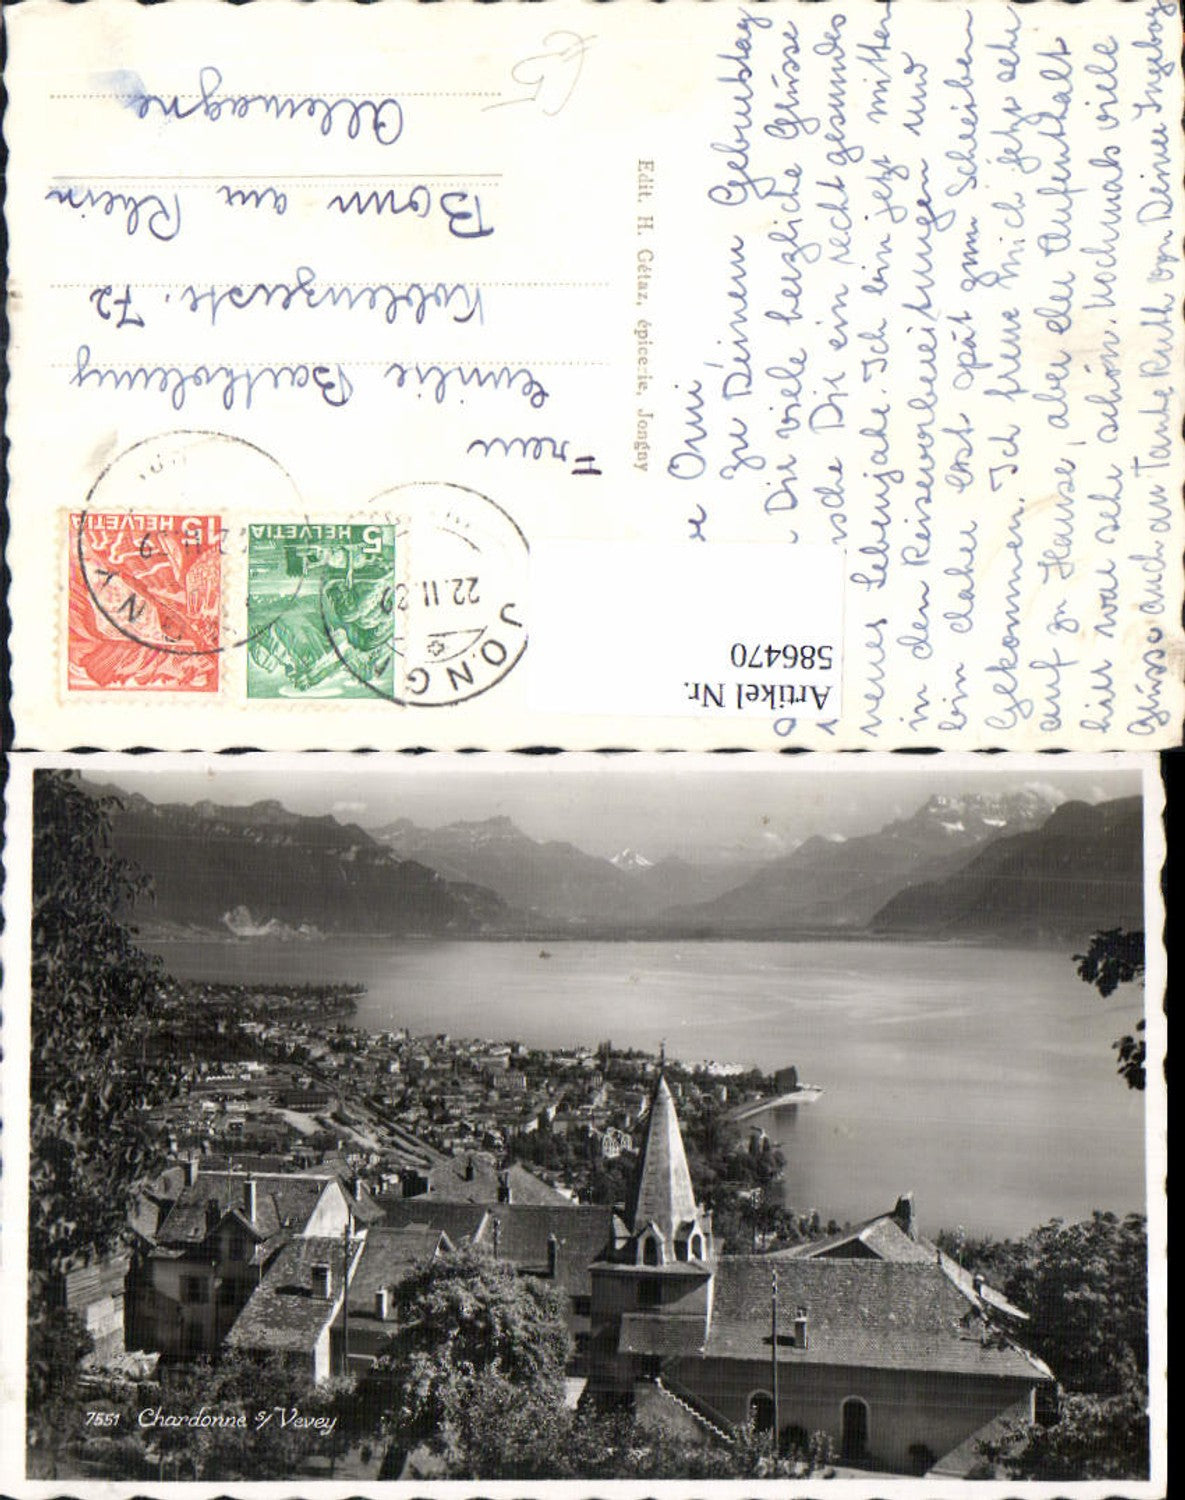 Liebe Omi
Zu Deinem Geburtstag
Dir viele herzliche Grüsse
wünsche Dir ein recht gesundes
neues Lebensjahr. Ich bin jetzt mitten
in den Reisevorbereitungen und
bin daher erst spät zum Schreiben
Gekommen. Ich freue mich jetzt sehr
auf zu Hause, aber der Aufenthalt
hier war sehr schön. Nochmals viele
Grüsse auch an Tante Ruth von Deiner Ingeborg
Edit. H. Gétaz, épicerie, Jongny
HELVETIA 5
HELVETIA 15
JONGNY
22.II.39
Frau
Emilie Bartholemy
Koblenzerstr. 72
Bonn am Rhein
Allemagne
Artikel Nr.
586470
7551 Chardonne s/ Vevey